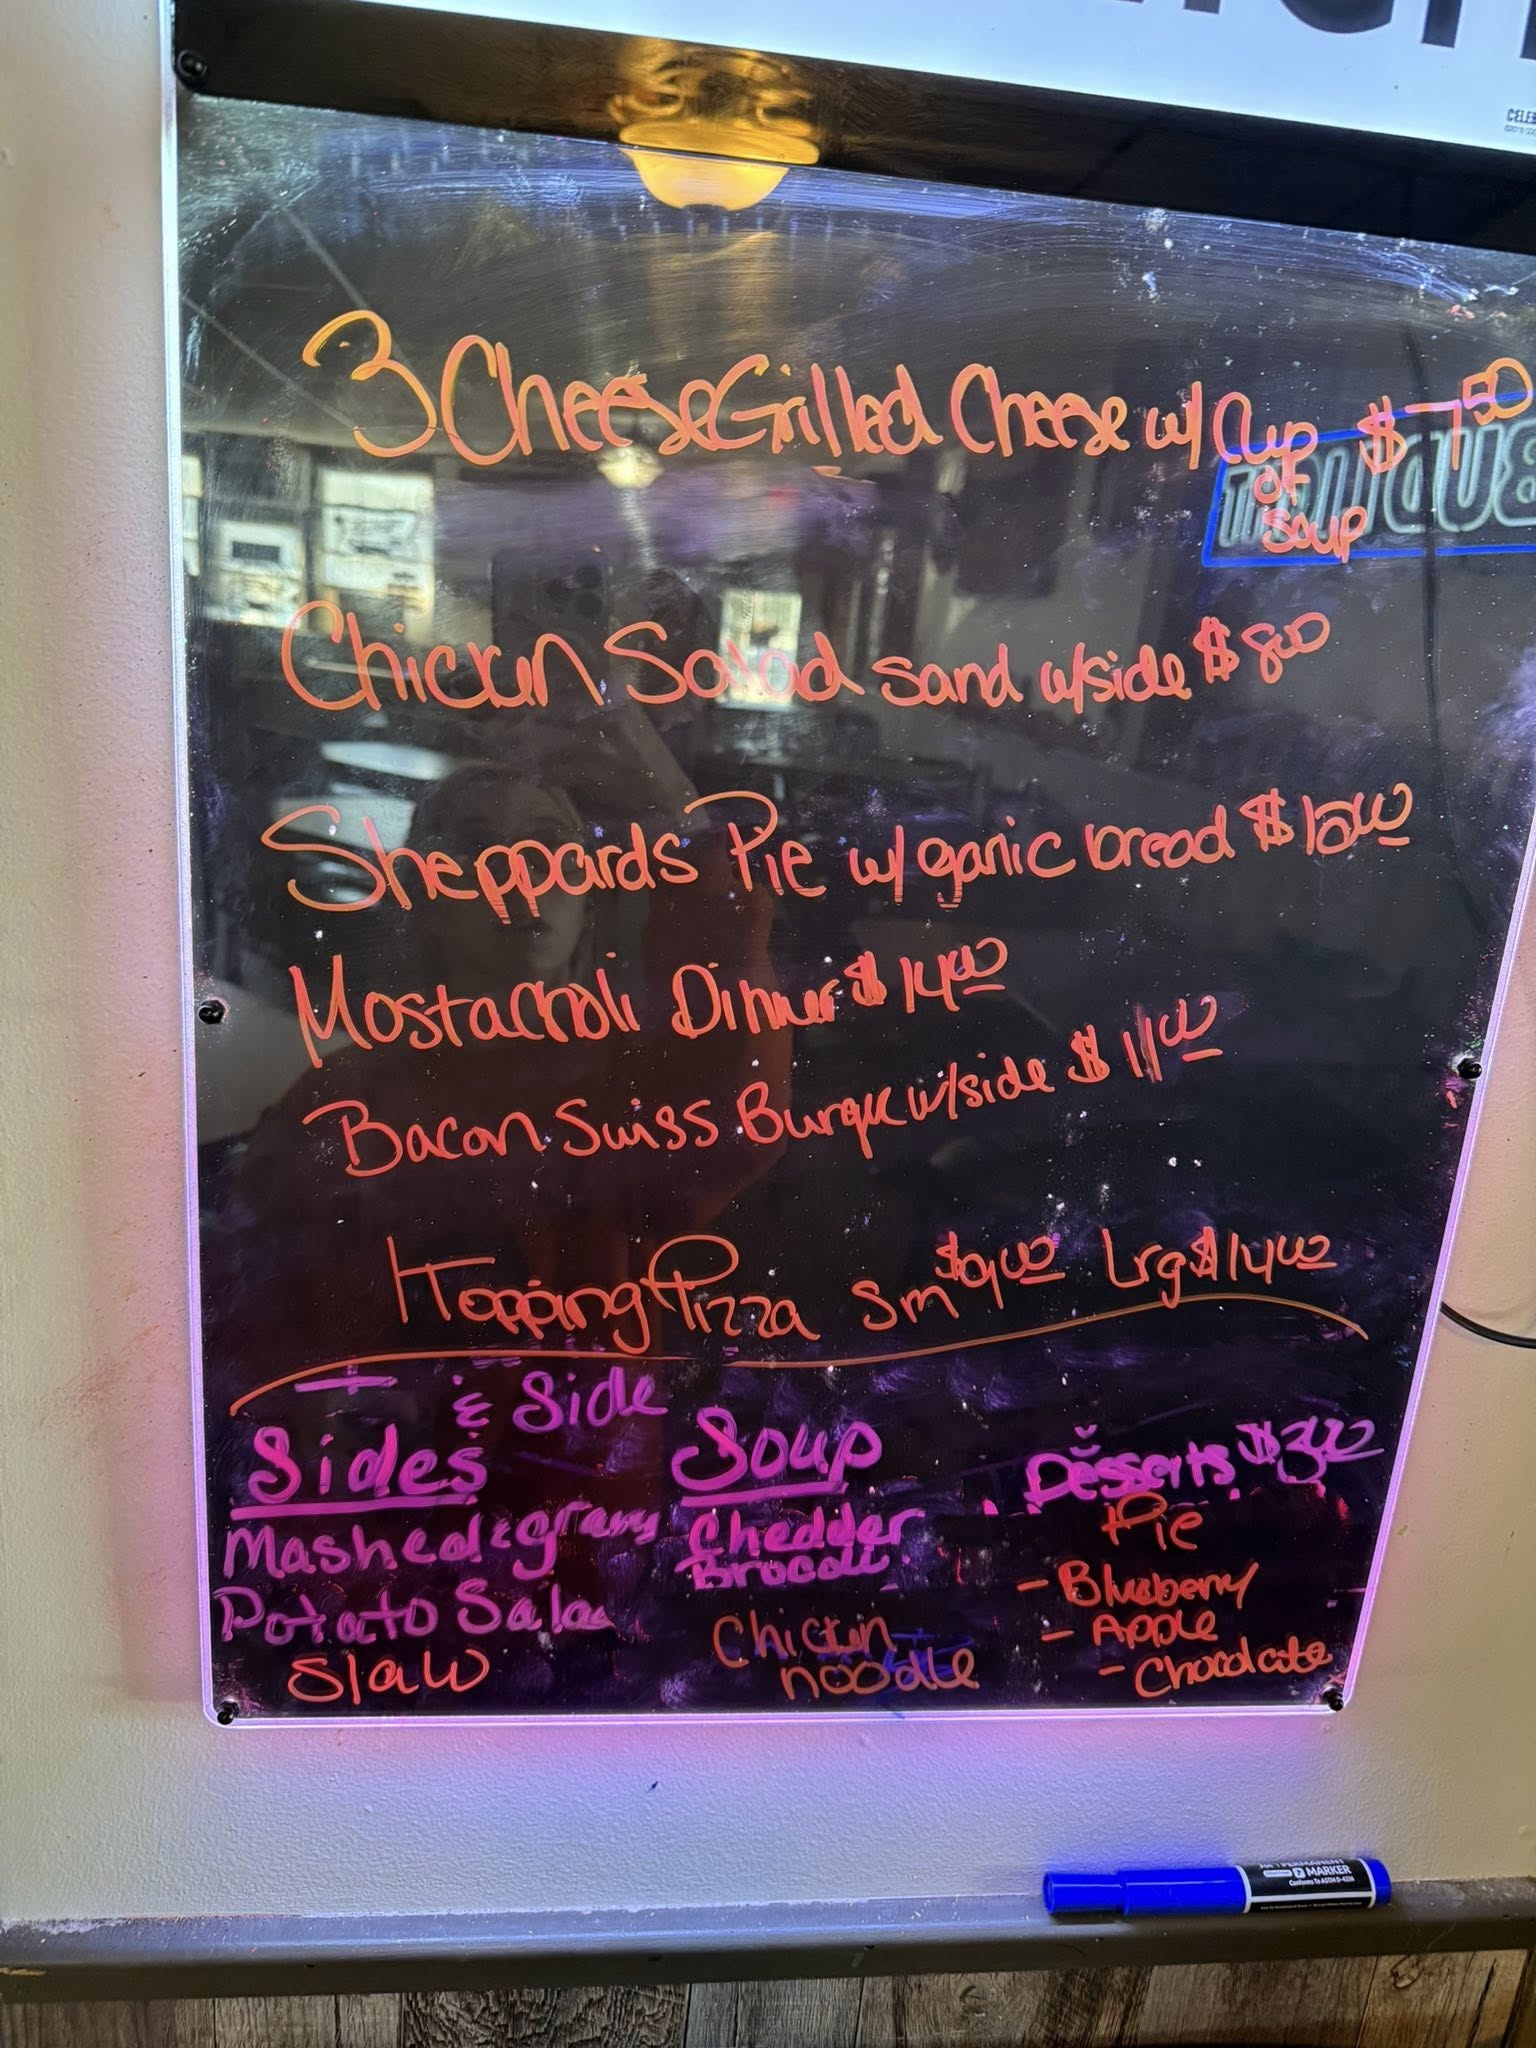 CELEB
3 Cheese Grilled Cheese w/ Cup of soup $7.50
Chicken Salad sand w/side $8.00
Sheppards Pie w/ garlic bread
Mostaccioli Dinner $14.00
Bacon Swiss Burger w/side $11.00
1 Topping Pizza Sm $9.00 Lrg $14.00
& Side
Sides
Mashed & gravy
Potato Salad
Slaw
Soup
Chedder
Brocoli
Chicken
noodle
Desserts $3.00
Pie
- Blueberry
- Apple
- Chocolate
MARKER
Conforms To ASTM D-4236